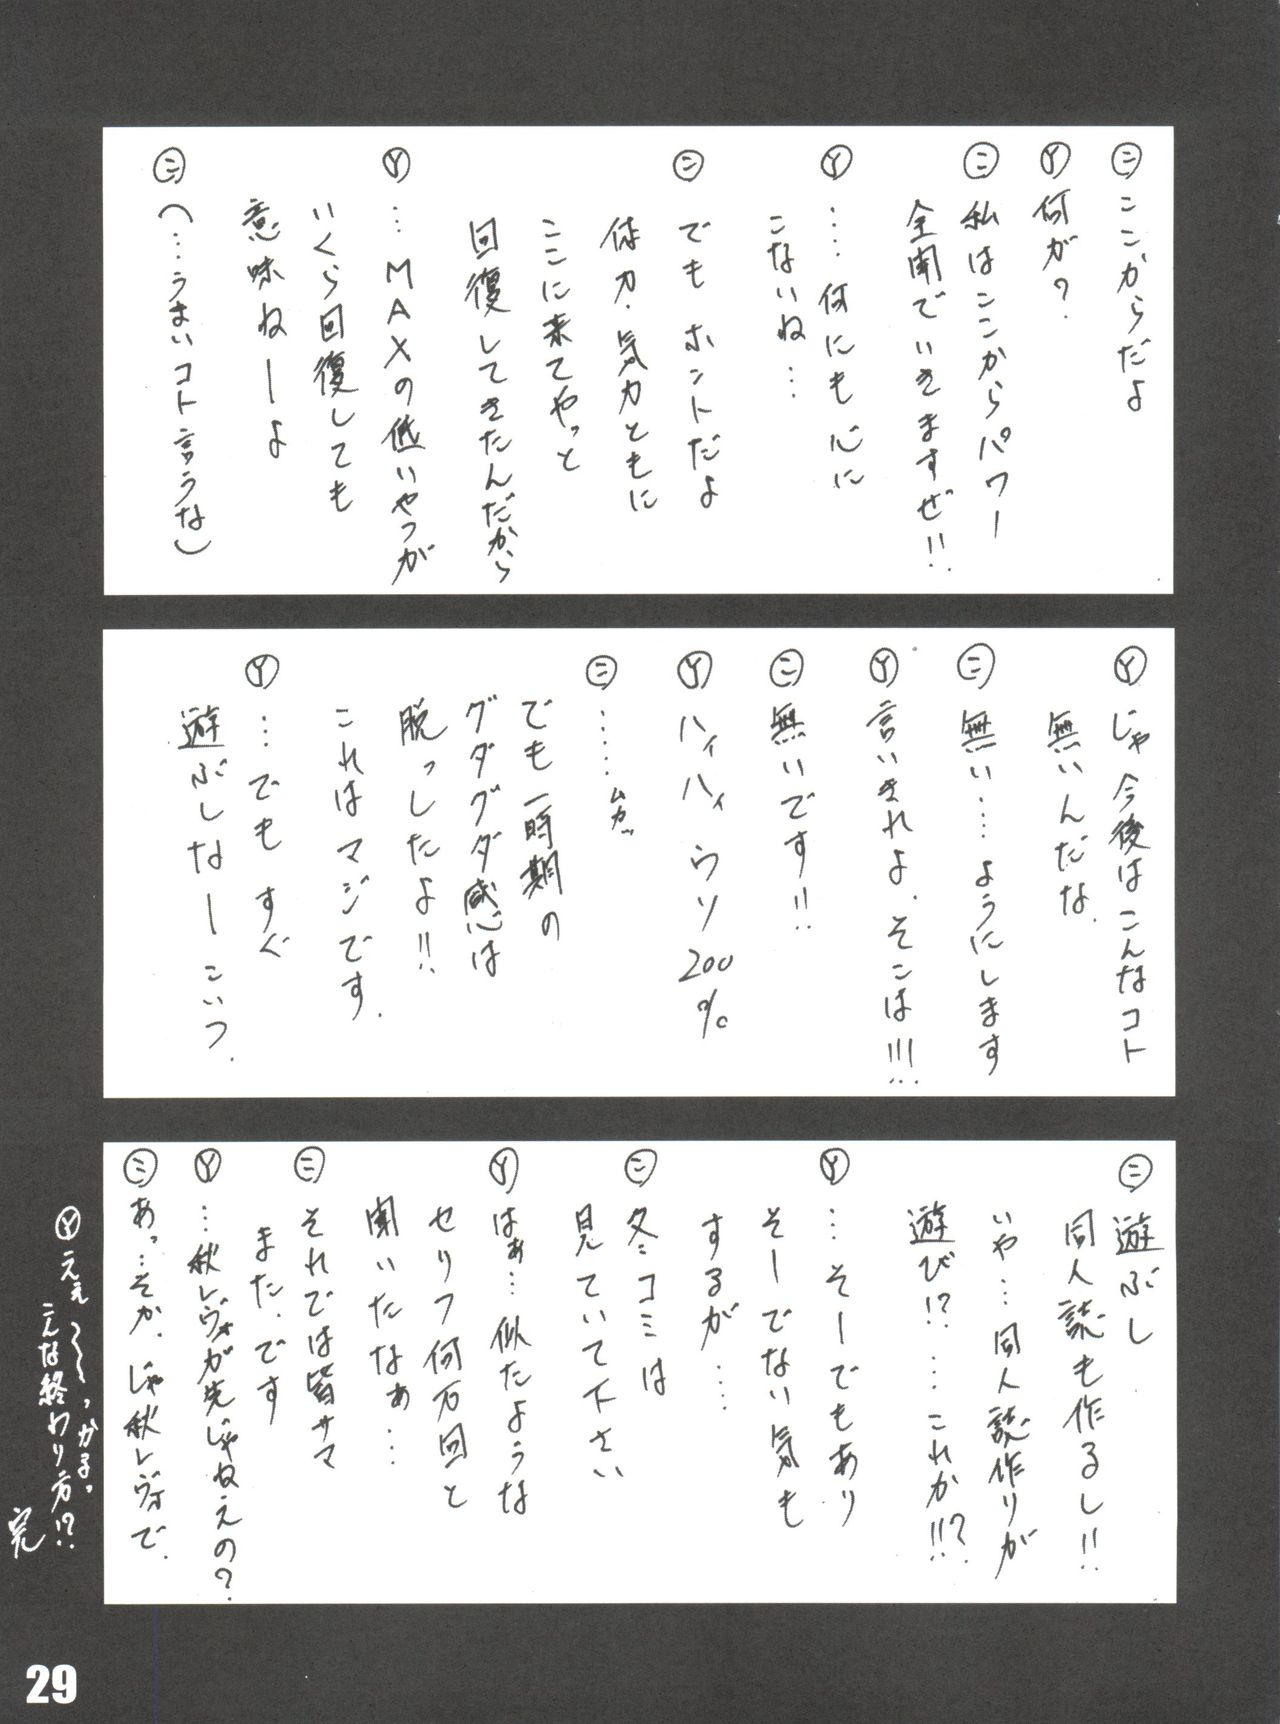 ㊁ ここからだよ
Ⓨ 何が？
㊁ 私はここからパワー
全開でいきますぜ!!
Ⓨ …何にも心に
こないね…
㊁ でも ホントだよ
体力・気力ともに
ここに来てやっと
回復してきたんだから
Ⓨ …MAXの低いやつが
いくら回復しても
意味ねーよ
㊁ (…うまいコト言うな)
Ⓨ じゃ今後はこんなコト
無いんだな.
㊁ 無い…ようにします
Ⓨ 言いきれよ.そこは!!!
㊁ 無いです!!
Ⓨ ハイハイ ウソ200%
㊁ ……ムカッ
でも一時期の
グダグダ感は
脱っしたよ!!
これはマジです.
Ⓨ …でもすぐ
遊ぶしなーこいつ.
㊁ 遊ぶし
同人誌も作るし!!
いや…同人誌作りが
遊び!?…これか!!?
Ⓨ …そーでもあり
そーでない気も
するが…
㊁ 冬コミは
見ていて下さい
Ⓨ はぁ…似たような
セリフ何万回と
聞いたなぁ…
㊁ それでは皆サマ
また.です
Ⓨ …秋レヴォが先じゃねえの？
㊁ あっ…そか.じゃ秋レヴォで.
Ⓨ えぇ〜〜っかるっ
こんな終わり方!?
完
29